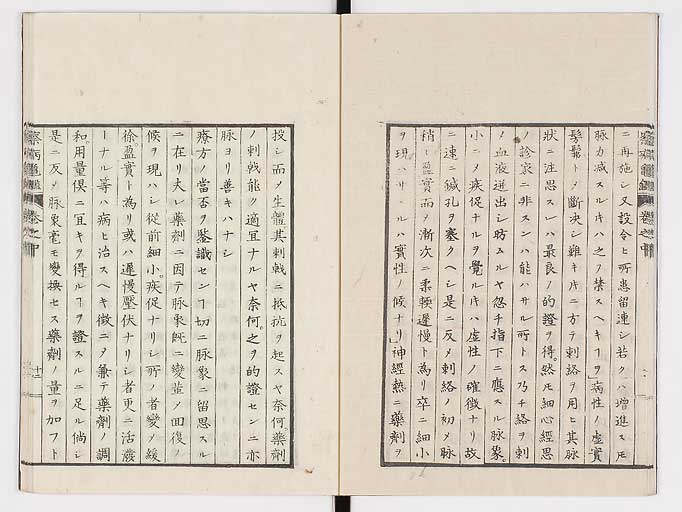 ニ再施シ又投令ヒ所患留連シ若クハ増進スモ
脉力减スルキハ之ヲ禁スヘキヿヲ」病性ノ虚實
髣髴トメ断决シ難キ片ニ方テ刺絡ヲ用ヒ其脉
狀ニ注思スレハ最良ノ的證ヲ得。然モ細心經思
ノ診家ニ非スンハ能ハサル所トス乃チ絡ヲ刺
ノ血液迸出シ時ムルヤ忽チ指下ニ應スル脉象。
小ニメ疾促ナルヲ覺ルキハ虚性ノ確徴ナリ故
ニ速ニ鍼孔ヲ塞クヘシ是ニ反メ刺絡ノ初メ脉
稍ヒ盈實而メ漸次ニ柔軟遲慢ト為リ卒ニ細小
ヲ現ハサルハ實性ノ候ナリ」神經熱ニ藥劑ヲ
投シ而メ生體其刺戟ニ抵抗ヲ起スヤ奈何藥劑
ノ刺戟能ク適宜ナルヤ奈何。之ヲ的證センニ亦
脉ヨリ善キハナシ
療方ノ當否ヲ鑒識センヿ一切ニ脉象ニ留思スル
ニ在リ夫レ藥劑ニ因テ脉象旣ニ變盖メ囬復ノ
候ヲ現ハシ從前細小。疾促ナリシ所ノ者變メ緩
徐。盈實ト為リ或ハ遲慢壓伏ナリシ者更ニ活潑
ーナル等ハ病ヒ治スヘキ徴ニメ兼テ藥劑ノ調
和。用量倶ニ宜キヲ得ルヿヲ證スルニ足ル倘シ
是ニ反メ脉象毫モ變換セス藥劑ノ量ヲ加フト
察病龜鑑 卷之中
十二